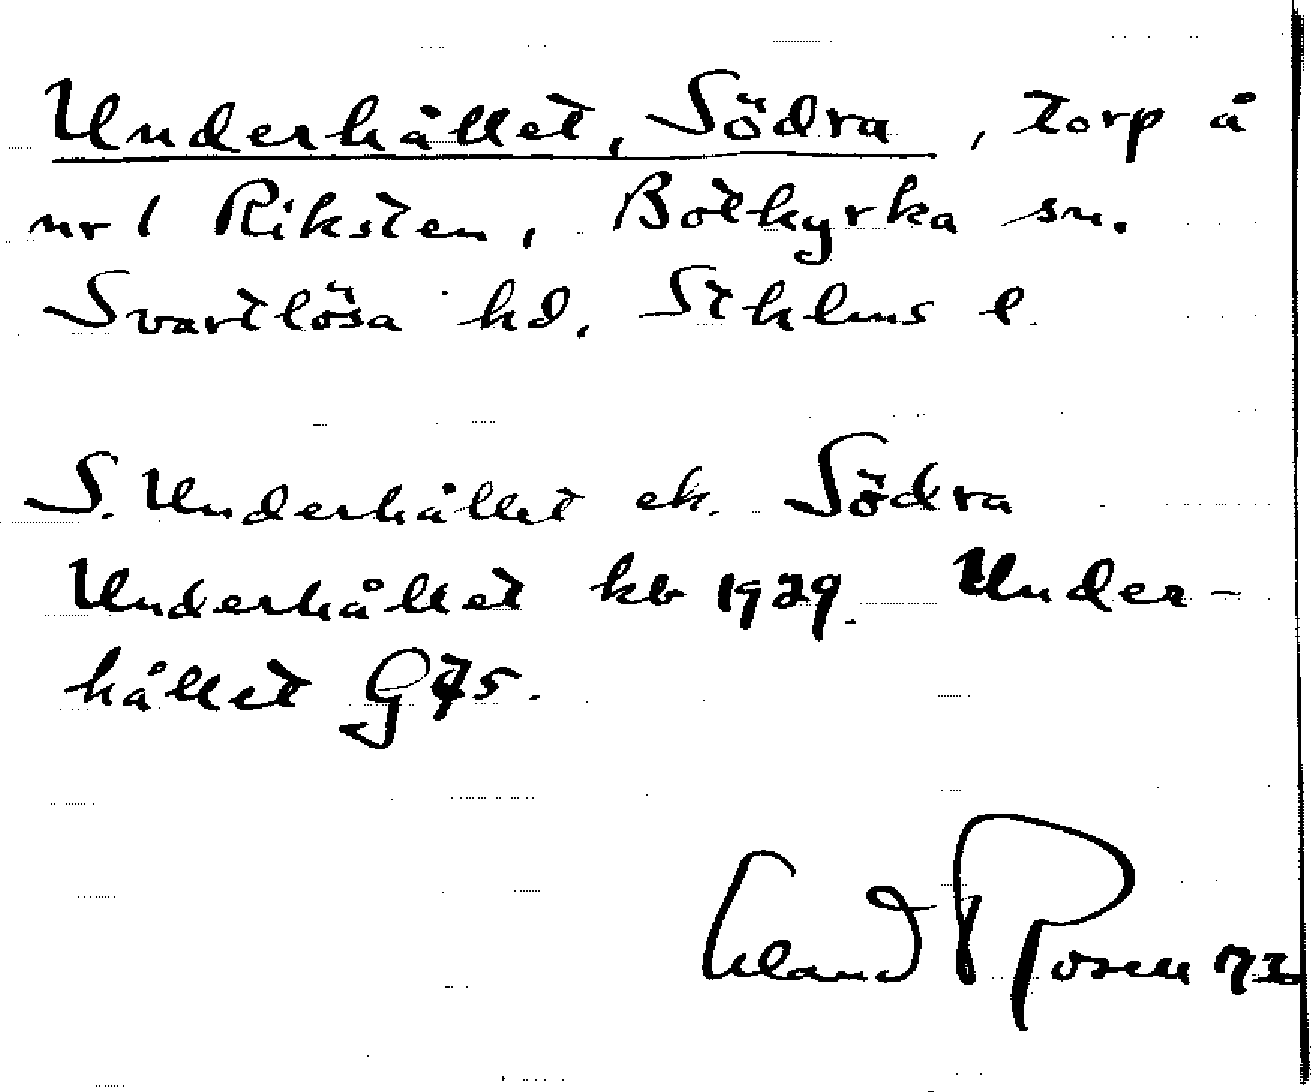 Underhållet, Södra, torp å
nr 1 Riksten, Botkyrka sn.
Svartlösa hd. Sthlms l.
S. Underhållet ek. Södra
Underhållet kb 1929. Under-
hållet G45.
Erland Rosell